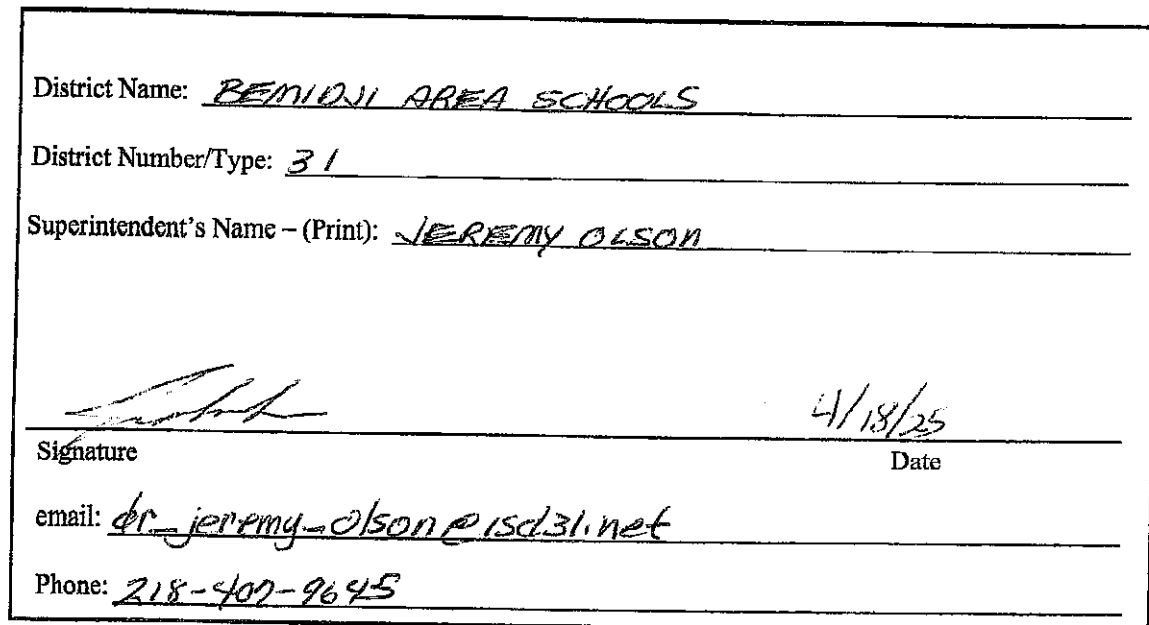 District Name: BEMIDJI AREA SCHOOLS
District Number/Type: 31
Superintendent's Name – (Print): JEREMY OLSON
4/18/25
Signature Date
email: dr_jeremy_olson@isd31.net
Phone: 218-407-9645